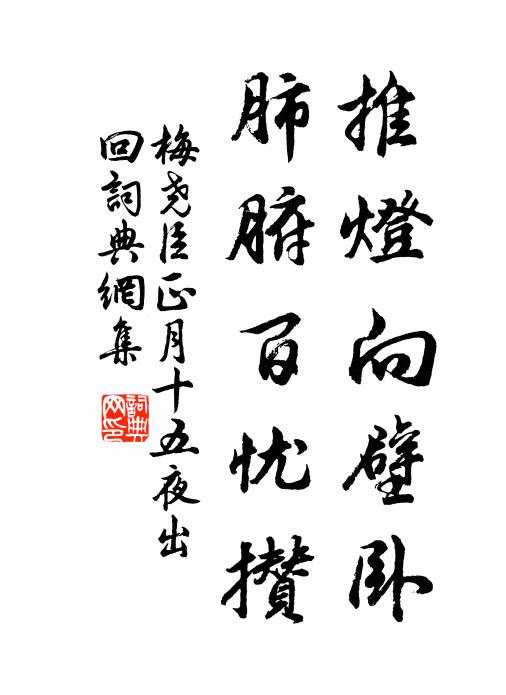 推燈向壁卧
肺腑百忧攒
梅尧臣正月十五夜出
回詞典網集
詞典网印